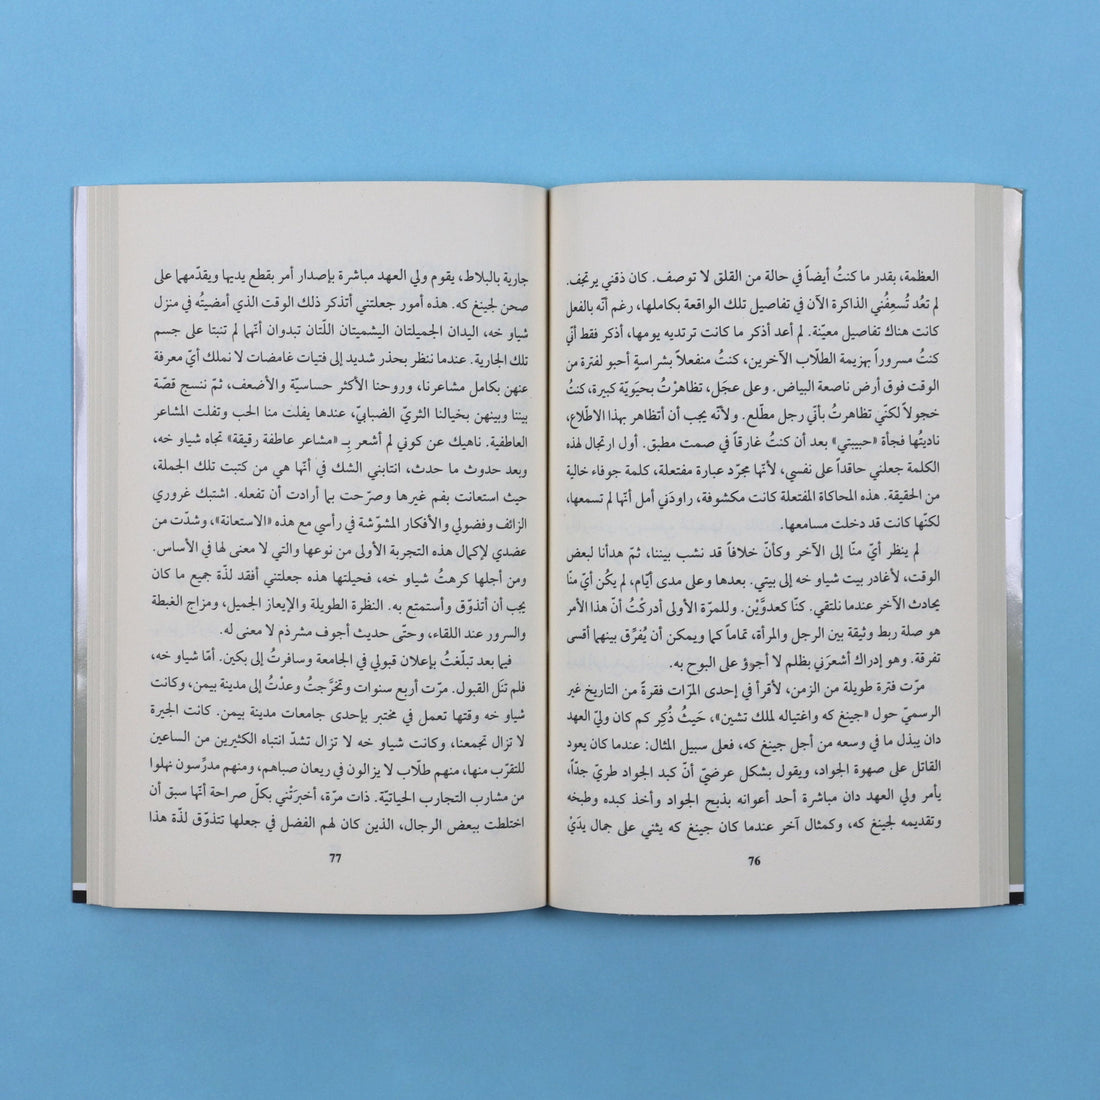 العظمة، بقدر ما كنتُ أيضاً في حالة من القلق لا توصف. كان ذقني يرتجف.
لم تعُد تُسعِفُني الذاكرة الآن في تفاصيل تلك الواقعة بكاملها، رغم أنّه بالفعل
كانت هناك تفاصيل معيّنة. لم أعد أذكر ما كانت ترتديه يومها، أذكر فقط أنّي
كنتُ مسروراً بهزيمة الطلّاب الآخرين، كنتُ منفعلاً بشراسةٍ أحبو لفترة من
الوقت فوق أرض ناصعة البياض. وعلى عجَل، تظاهرْتُ بحيَويّة كبيرة، كنتُ
خجولاً لكنّي تظاهرتُ بأنّي رجل مطّلع. ولأنّه يجب أن أتظاهر بهذا الاطّلاع،
ناديتُها فجأة «حبيبتي» بعد أن كنتُ غارقاً في صمت مطبق. أول ارتجال لهذه
الكلمة جعلني حاقداً على نفسي، لأنّها مجرّد عبارة مفتعلة، كلمة جوفاء خالية
من الحقيقة. هذه المحاكاة المفتعلة كانت مكشوفة، راودَني أمل أنّها لم تسمعها،
لكنّها كانت قد دخلت مسامعها.
لم ينظر أيّ منّا إلى الآخر وكأنّ خلافاً قد نشب بيننا، ثمّ هدأنا لبعض
الوقت، لأغادر بيت شياو خه إلى بيتي. بعدها وعلى مدى أيّام، لم يكُن أيّ منّا
يحادث الآخر عندما نلتقي. كنّا كعدوَّيْن. وللمرّة الأولى أدركْتُ أنّ هذا الأمر
هو صلة ربط وثيقة بين الرجل والمرأة، تماماً كما ويمكن أن يُفرِّق بينهما أقسى
تفرقة. وهو إدراك أشعرَني بظلم لا أجرؤ على البوح به.
مرّت فترة طويلة من الزمن، لأقرأ في إحدى المرّات فقرةً من التاريخ غير
الرسميّ حول «جينغ كه واغتياله لملك تشين»، حَيثُ ذُكِر كم كان وليّ العهد
دان يبذل ما في وسعه من أجل جينغ كه، فعلى سبيل المثال: عندما كان يعود
القاتل على صهوة الجواد، ويقول بشكل عرضيّ أنّ كبد الجواد طريّ جدّاً،
يأمر ولي العهد دان مباشرة أحد أعوانه بذبح الجواد وأخذ كبده وطبخه
وتقديمه لجينغ كه، وكمثال آخر عندما كان جينغ كه يثني على جمال يدَيْ
76
جارية بالبلاط، يقوم ولي العهد مباشرة بإصدار أمر بقطع يديها ويقدّمهما على
صحن لجينغ كه. هذه أمور جعلتني أتذكر ذلك الوقت الذي أمضيتُه في منزل
شياو خه، اليدان الجميلتان اليشميتان اللّتان تبدوان أنّهما لم تنبتا على جسم
تلك الجارية. عندما ننظر بحذر شديد إلى فتيات غامضات لا نملك أيّ معرفة
عنهن بكامل مشاعرنا، وروحنا الأكثر حساسيّة والأضعف، ثمّ ننسج قصّة
بيننا وبينهن بخيالنا الثريّ الضبابيّ، عندها يفلت منا الحب وتفلت المشاعر
العاطفية. ناهيك عن كوني لم أشعر بـ «مشاعر عاطفة رقيقة» تجاه شياو خه،
وبعد حدوث ما حدث، انتابني الشك في أنّها هي من كتبت تلك الجملة،
حيث استعانت بفم غيرها وصرّحت بما أرادت أن تفعله. اشتبك غروري
الزائف وفضولي والأفكار المشوّشة في رأسي مع هذه «الاستعانة»، وشدّت من
عضدي لإكمال هذه التجربة الأولى من نوعها والتي لا معنى لها في الأساس.
ومن أجلها كرهتُ شياو خه، فحيلتها هذه جعلتني أفقد لذّة جميع ما كان
يجب أن أتذوّق وأستمتع به. النظرة الطويلة والإيعاز الجميل، ومزاج الغبطة
والسرور عند اللقاء، وحتّى حديث أجوف مشرذم لا معنى له.
فيما بعد تبلّغتُ بإعلان قبولي في الجامعة وسافرتُ إلى بكين. أمّا شياو خه،
فلم تنَل القبول. مرّت أربع سنوات وتخرَّجتُ وعدْتُ إلى مدينة بيمن، وكانت
شياو خه وقتها تعمل في مختبر بإحدى جامعات مدينة بيمن. كانت الجيرة
لا تزال تجمعنا، وكانت شياو خه لا تزال تشدّ انتباه الكثيرين من الساعين
للتقرّب منها، منهم طلّاب لا يزالون في ريعان صباهم، ومنهم مدرِّسون نهلوا
من مشارب التجارب الحياتيّة. ذات مرّة، أخبرَتْني بكلّ صراحة أنّها سبق أن
اختلطت ببعض الرجال، الذين كان لهم الفضل في جعلها تتذوّق لذّة هذا
77